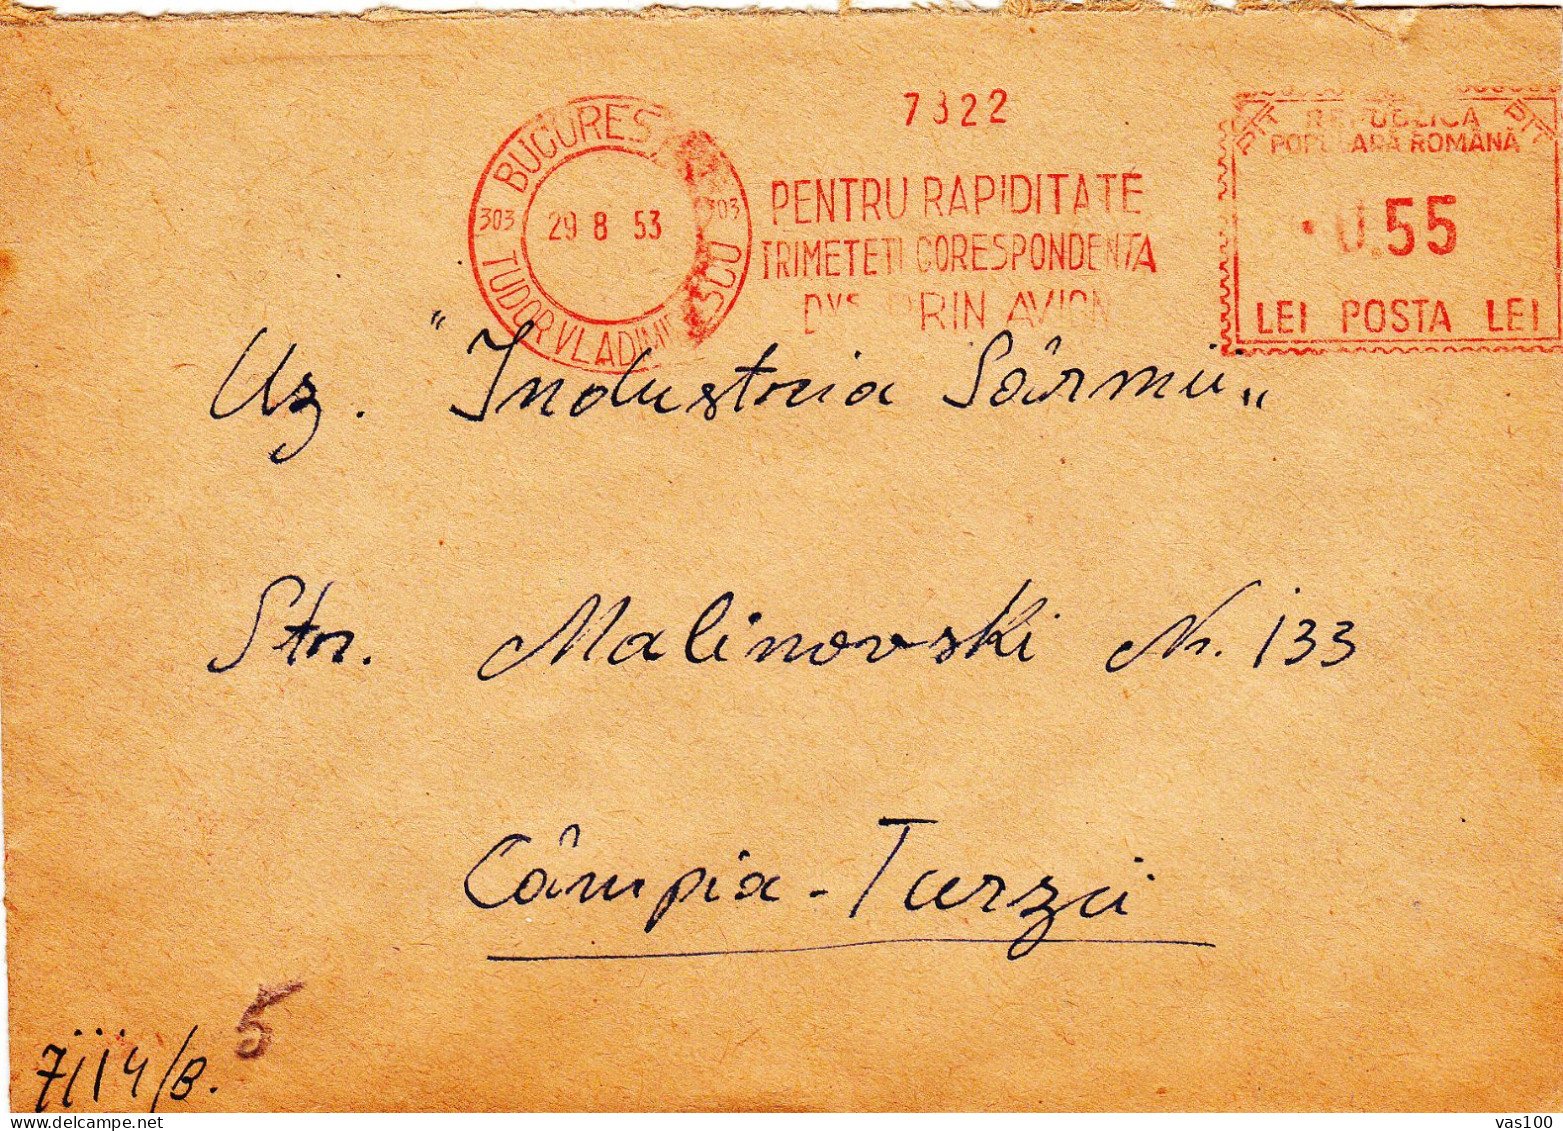 7322
BUCUREȘTI
303 29 8 53 303
TUDOR VLADIMIRESCU
PENTRU RAPIDITATE
TRIMETETI CORESPONDENTA
DVS. PRIN AVION
PTT REPUBLICA PTT
POPULARĂ ROMÂNĂ
0.55
LEI POSTA LEI
Uz. "Industria Sârmii„
Str. Malinovski Nr. 133
Câmpia-Turzii
5
7114/B.
delcampe.net
vas100